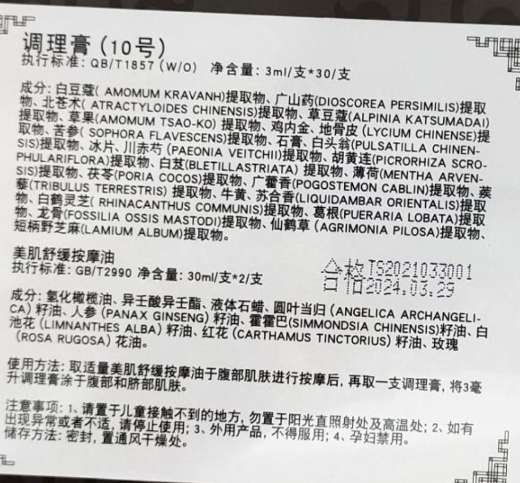 调理膏 (10号)
执行标准: QB/T1857 (W/O) 净含量: 3ml/支*30/支
成分: 白豆蔻( AMOMUM KRAVANH)提取物、广山药(DIOSCOREA PERSIMILIS)提取
物、北苍术( ATRACTYLOIDES CHINENSIS)提取物、草豆蔻(ALPINIA KATSUMADAI)
提取物、草果(AMOMUM TSAO-KO) 提取物、鸡内金、地骨皮 (LYCIUM CHINENSE)提
取物、苦参( SOPHORA FLAVESCENS)提取物、石膏、白头翁(PULSATILLA CHINEN-
SIS)提取物、冰片、川赤芍 (PAEONIA VEITCHII)提取物、胡黄连(PICRORHIZA SCRO-
PHULARIFLORA)提取物、白芨(BLETILLASTRIATA) 提取物、薄荷(MENTHA ARVEN-
SIS)提取物、茯苓(PORIA COCOS)提取物、广藿香(POGOSTEMON CABLIN)提取物、蒺
藜(TRIBULUS TERRESTRIS) 提取物、牛黄、苏合香(LIQUIDAMBAR ORIENTALIS)提取
物、白鹤灵芝( RHINACANTHUS COMMUNIS)提取物、葛根(PUERARIA LOBATA)提取
物、龙骨(FOSSILIA OSSIS MASTODI)提取物、仙鹤草 (AGRIMONIA PILOSA)提取物、
短柄野芝麻(LAMIUM ALBUM)提取物。
美肌舒缓按摩油
执行标准: GB/T2990 净含量: 30ml/支*2/支
合格 TS2021033001
2024.03.29
成分: 氢化橄榄油、异壬酸异壬酯、液体石蜡、圆叶当归 (ANGELICA ARCHANGELI-
CA) 籽油、人参 (PANAX GINSENG) 籽油、霍霍巴(SIMMONDSIA CHINENSIS)籽油、白
池花 (LIMNANTHES ALBA) 籽油、红花 (CARTHAMUS TINCTORIUS) 籽油、玫瑰
(ROSA RUGOSA) 花油。
使用方法: 取适量美肌舒缓按摩油于腹部肌肤进行按摩后, 再取一支调理膏, 将3毫
升调理膏涂于腹部和脐部肌肤。
注意事项: 1、请置于儿童接触不到的地方, 勿置于阳光直照射处及高温处; 2、如有
出现异常或者不适, 请停止使用; 3、外用产品, 不得服用; 4、孕妇禁用。
储存方法: 密封, 置通风干燥处。